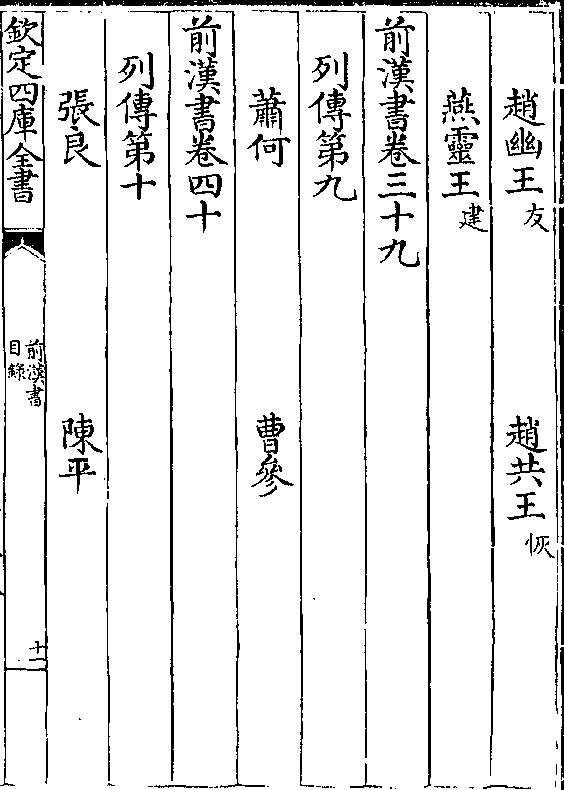 趙幽王友　趙共王恢
燕靈王建
前漢書卷三十九
列傳第九
蕭何　曹參
前漢書卷四十
列傳第十
張良　陳平
欽定四庫全書
前漢書
目錄
十一